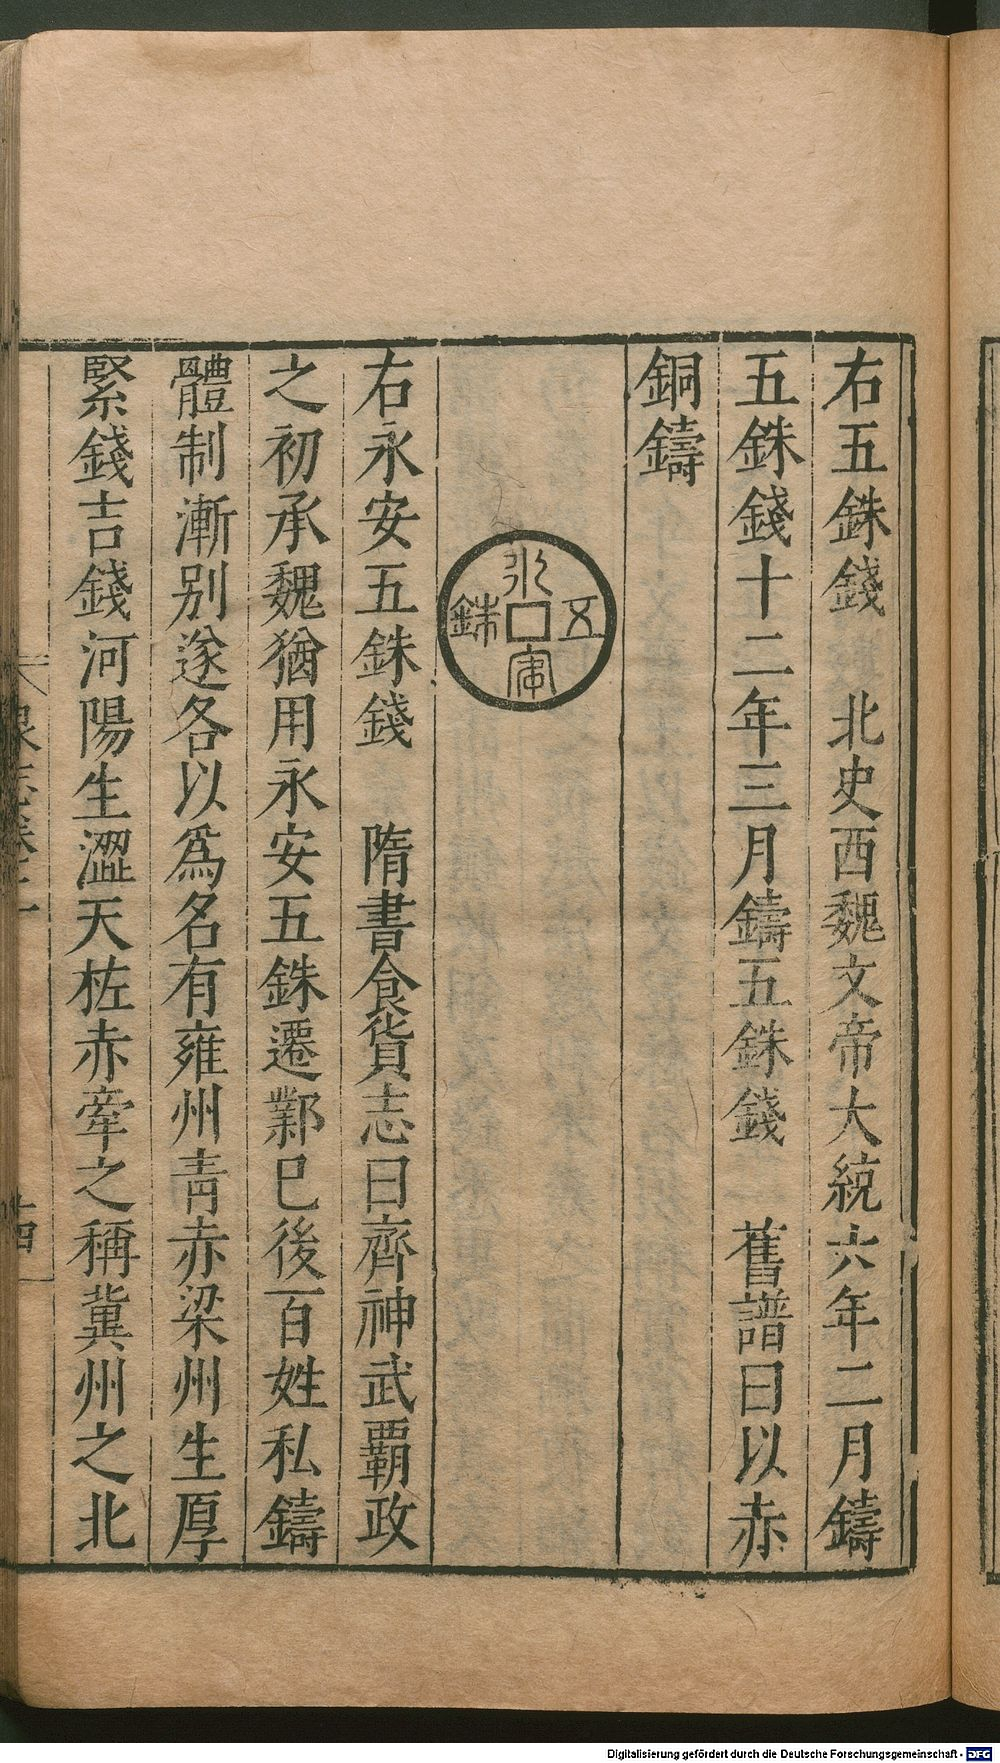 右五銖錢　北史西魏文帝大統六年二月鑄
五銖錢十二年三月鑄五銖錢　舊譜曰以赤
銅鑄
永安五銖
右永安五銖錢　隋書食貨志曰齊神武覇政
之初承魏猶用永安五銖遷鄴已後百姓私鑄
體制漸別遂各以爲名有雍州青赤梁州生厚
緊錢吉錢河陽生澀天柱赤牽之稱冀州之北
泉志卷二
十四
Digitalisierung gefördert durch die Deutsche Forschungsgemeinschaft - DFG